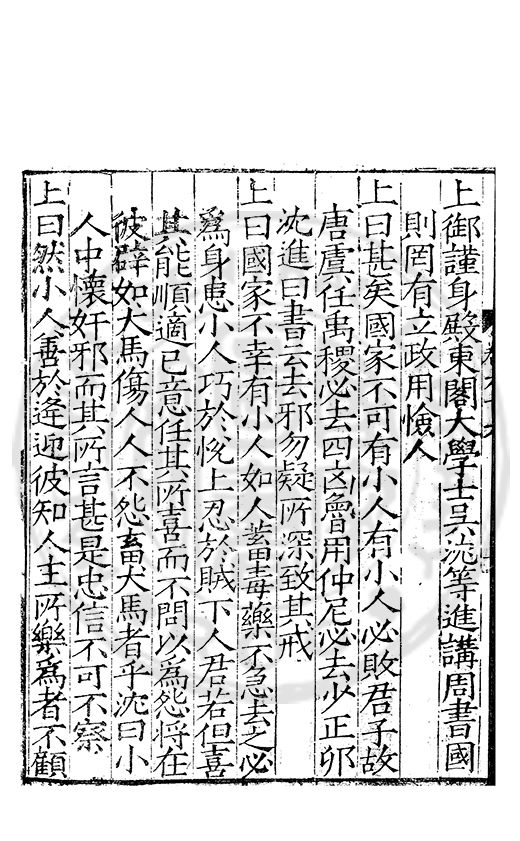 上御謹身殿東閣大學士吳沈等進講周書國
則罔有立政用憸人
上曰甚矣國家不可有小人有小人必敗君子故
唐虞任禹稷必去四凶魯用仲尼必去少正卯
沈進曰書云去邪勿疑所深致其戒
上曰國家不幸有小人如人蓄毒藥不急去之必
爲身患小人巧於悅上忍於賊下人君若但喜
其能順適己意任其所喜而不問以爲怨將在
彼辟如犬馬傷人人不怨畜犬馬者乎沈曰小
人中懷奸邪而其所言甚是忠信不可不察
上曰然小人善於逄迎彼知人主所樂爲者不顧